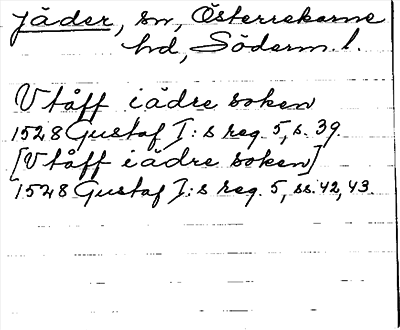 Jäder, sn, Österrekarne
hd, Söderm. l.
Vtåff iädre soken
1528 Gustaf I:s reg. 5, s. 39.
[Vtåff iädre soken]
1528 Gustaf I:s reg. 5, ss. 42, 43.